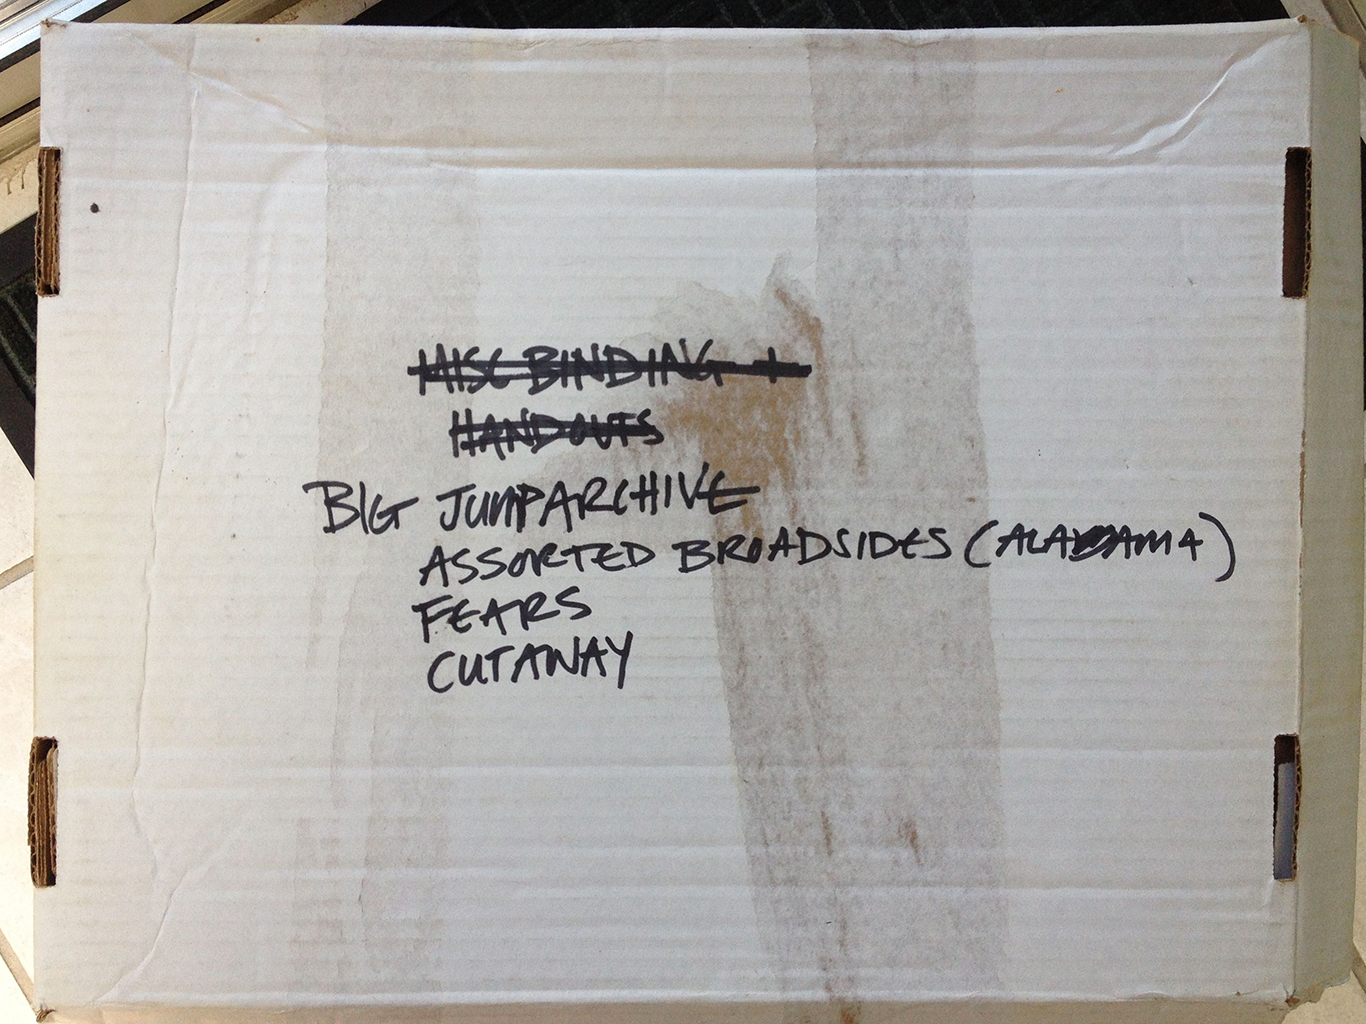 MISC BINDING +
HANDOUTS
BIG JUMP ARCHIVE
ASSORTED BROADSIDES (ALABAMA)
FEARS
CUTAWAY